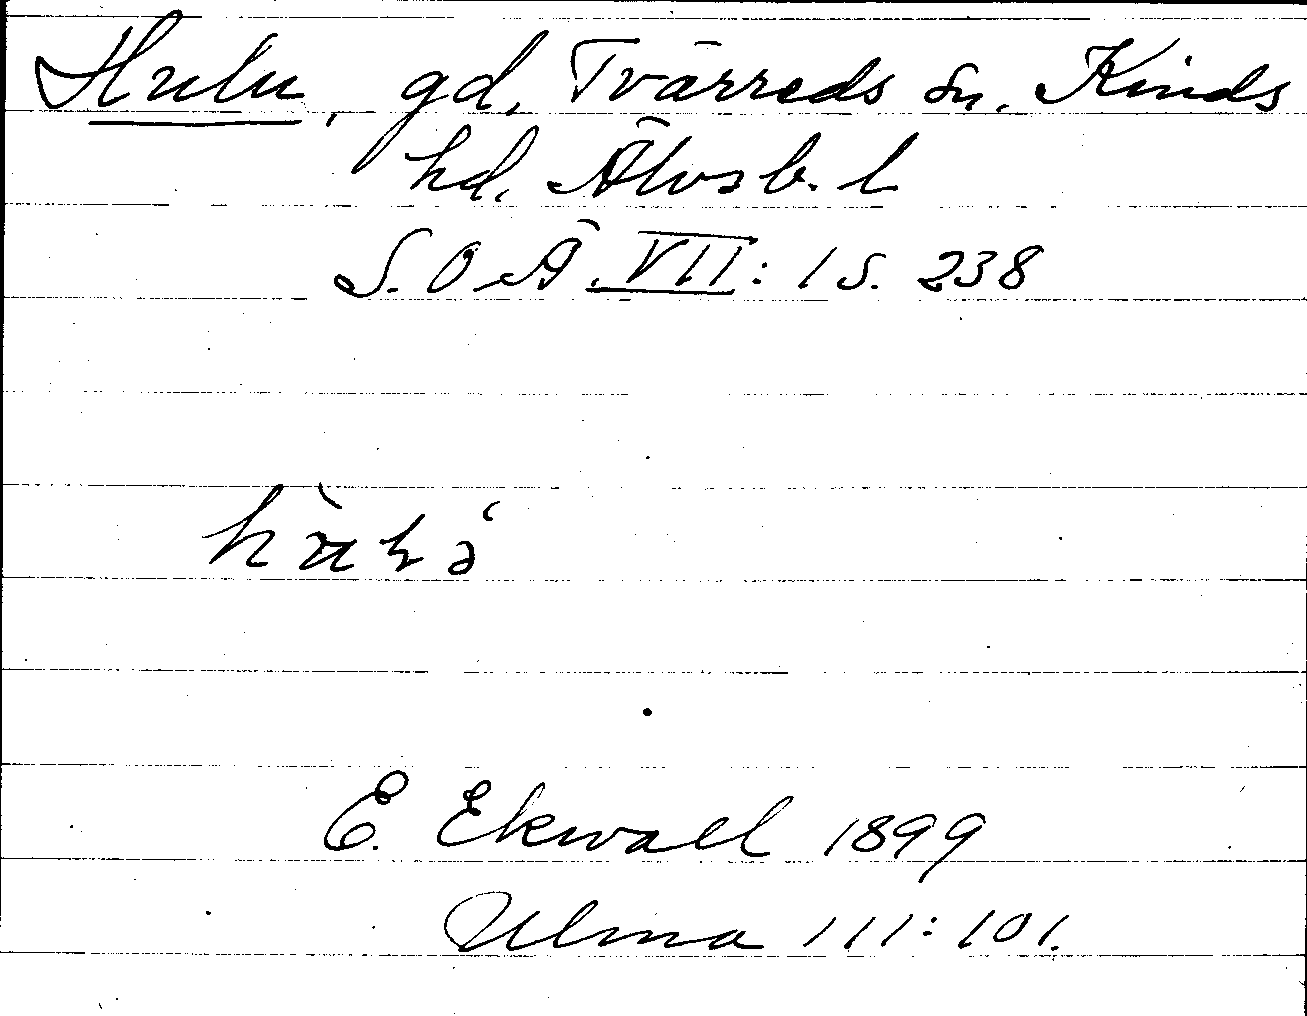 Hulu, gd, Tvärreds sn. Kinds
hd. Älvsb. l
S. O Ä VII: 1 s. 238
E. Ekwall 1899
Ulma 111:101.